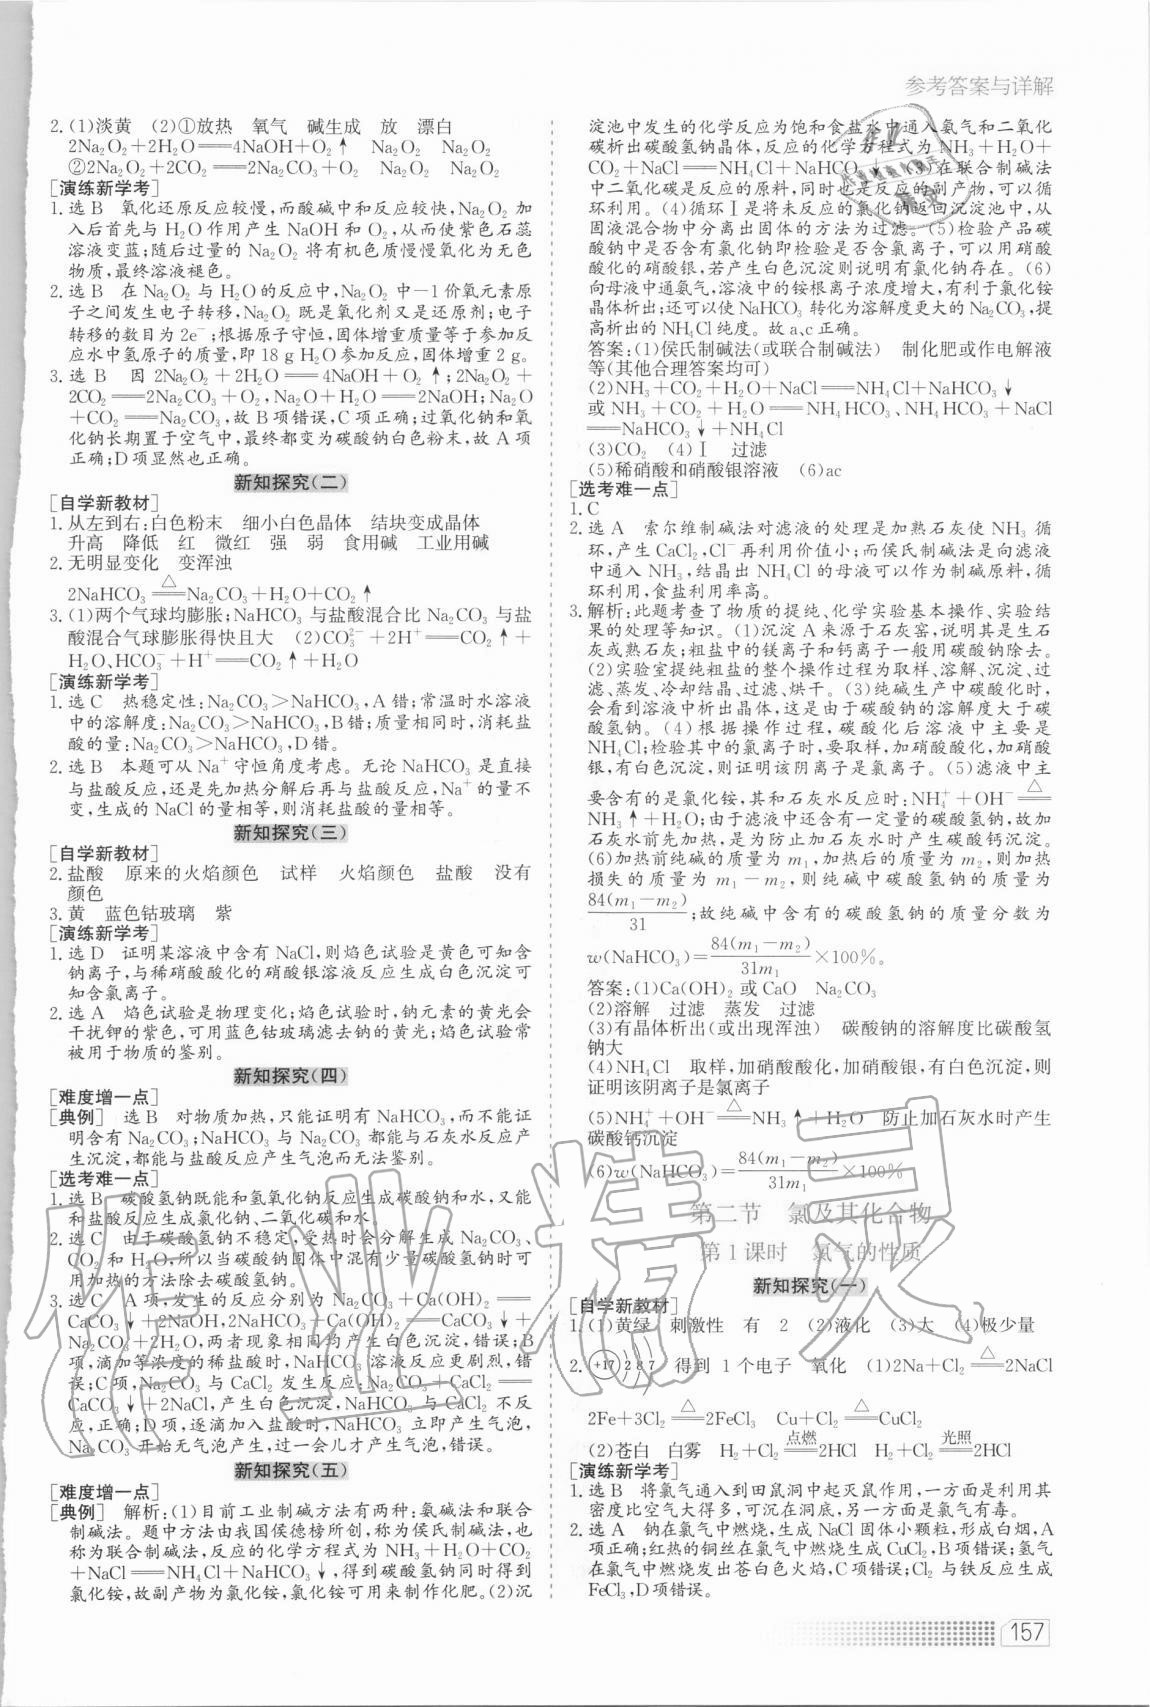 参考答案与详解
2.(1)淡黄　(2)①放热　氧气　碱生成　放　漂白
2Na₂O₂＋2H₂O══4NaOH＋O₂↑　Na₂O₂　Na₂O₂
②2Na₂O₂＋2CO₂══2Na₂CO₃＋O₂　Na₂O₂　Na₂O₂
[演练新学考]
1.选 B　氧化还原反应较慢,而酸碱中和反应较快,Na₂O₂ 加
入后首先与 H₂O 作用产生 NaOH 和 O₂,从而使紫色石蕊
溶液变蓝;随后过量的 Na₂O₂ 将有机色质慢慢氧化为无色
物质,最终溶液褪色。
2.选 B　在 Na₂O₂ 与 H₂O 的反应中,Na₂O₂ 中－1 价氧元素原
子之间发生电子转移,Na₂O₂ 既是氧化剂又是还原剂;电子
转移的数目为 2e⁻;根据原子守恒,固体增重质量等于参加反
应水中氢原子的质量,即 18 g H₂O 参加反应,固体增重 2 g。
3.选 B　因 2Na₂O₂＋2H₂O══4NaOH＋O₂↑;2Na₂O₂＋
2CO₂══2Na₂CO₃＋O₂,Na₂O＋H₂O══2NaOH;Na₂O
＋CO₂══Na₂CO₃,故 B 项错误,C 项正确;过氧化钠和氧
化钠长期置于空气中,最终都变为碳酸钠白色粉末,故 A 项
正确;D 项显然也正确。
新知探究(二)
[自学新教材]
1.从左到右:白色粉末　细小白色晶体　结块变成晶体
升高　降低　红　微红　强　弱　食用碱　工业用碱
2.无明显变化　变浑浊
2NaHCO₃══△Na₂CO₃＋H₂O＋CO₂↑
3.(1)两个气球均膨胀;NaHCO₃ 与盐酸混合比 Na₂CO₃ 与盐
酸混合气球膨胀得快且大　(2)CO₃²⁻＋2H⁺══CO₂↑＋
H₂O、HCO₃⁻＋H⁺══CO₂↑＋H₂O
[演练新学考]
1.选 C　热稳定性:Na₂CO₃＞NaHCO₃,A 错;常温时水溶液
中的溶解度:Na₂CO₃＞NaHCO₃,B 错;质量相同时,消耗盐
酸的量:Na₂CO₃＞NaHCO₃,D 错。
2.选 B　本题可从 Na⁺ 守恒角度考虑。无论 NaHCO₃ 是直接
与盐酸反应,还是先加热分解后再与盐酸反应,Na⁺ 的量不
变,生成的 NaCl 的量相等,则消耗盐酸的量相等。
新知探究(三)
[自学新教材]
2.盐酸　原来的火焰颜色　试样　火焰颜色　盐酸　没有
颜色
3.黄　蓝色钴玻璃　紫
[演练新学考]
1.选 D　证明某溶液中含有 NaCl,则焰色试验是黄色可知含
钠离子,与稀硝酸酸化的硝酸银溶液反应生成白色沉淀可
知含氯离子。
2.选 A　焰色试验是物理变化;焰色试验时,钠元素的黄光会
干扰钾的紫色,可用蓝色钴玻璃滤去钠的黄光;焰色试验常
被用于物质的鉴别。
新知探究(四)
[难度增一点]
[典例]　选 B　对物质加热,只能证明有 NaHCO₃,而不能证
明含有 Na₂CO₃;NaHCO₃ 与 Na₂CO₃ 都能与石灰水反应产
生沉淀,都能与盐酸反应产生气泡而无法鉴别。
[选考难一点]
1.选 B　碳酸氢钠既能和氢氧化钠反应生成碳酸钠和水,又能
和盐酸反应生成氯化钠、二氧化碳和水。
2.选 C　由于碳酸氢钠不稳定,受热时会分解生成 Na₂CO₃、
CO₂ 和 H₂O,所以当碳酸钠固体中混有少量碳酸氢钠时可
用加热的方法除去碳酸氢钠。
3.选 C　A 项,发生的反应分别为 Na₂CO₃＋Ca(OH)₂══
CaCO₃↓＋2NaOH,2NaHCO₃＋Ca(OH)₂══CaCO₃↓＋
Na₂CO₃＋2H₂O,两者现象相同均产生白色沉淀,错误;B
项,滴加等浓度的稀盐酸时,NaHCO₃ 溶液反应更剧烈,错
误;C 项,Na₂CO₃ 与 CaCl₂ 发生反应:Na₂CO₃＋CaCl₂══
CaCO₃↓＋2NaCl,产生白色沉淀,NaHCO₃ 与 CaCl₂ 不反
应,正确;D 项,逐滴加入盐酸时,NaHCO₃ 立即产生气泡,
Na₂CO₃ 开始无气泡产生,过一会儿才产生气泡,错误。
新知探究(五)
[难度增一点]
[典例]　解析:(1)目前工业制碱方法有两种:氨碱法和联合
制碱法。题中方法由我国侯德榜所创,称为侯氏制碱法,也
称为联合制碱法,反应的化学方程式为 NH₃＋H₂O＋CO₂
＋NaCl══NH₄Cl＋NaHCO₃↓,得到碳酸氢钠同时得到
氯化铵,故副产物为氯化铵,氯化铵可用来制作化肥。(2)沉
淀池中发生的化学反应为饱和食盐水中通入氨气和二氧化
碳析出碳酸氢钠晶体,反应的化学方程式为 NH₃＋H₂O＋
CO₂＋NaCl══NH₄Cl＋NaHCO₃↓。(3)在联合制碱法
中二氧化碳是反应的原料,同时也是反应的副产物,可以循
环利用。(4)循环Ⅰ是将未反应的氯化钠返回沉淀池中,从
固液混合物中分离出固体的方法为过滤。(5)检验产品碳
酸钠中是否含有氯化钠即检验是否含氯离子,可以用硝酸
酸化的硝酸银,若产生白色沉淀则说明有氯化钠存在。(6)
向母液中通氨气,溶液中的铵根离子浓度增大,有利于氯化铵
晶体析出;还可以使 NaHCO₃ 转化为溶解度更大的 Na₂CO₃,提
高析出的 NH₄Cl 纯度。故 a、c 正确。
答案:(1)侯氏制碱法(或联合制碱法)　制化肥或作电解液
等(其他合理答案均可)
(2)NH₃＋CO₂＋H₂O＋NaCl══NH₄Cl＋NaHCO₃↓
或 NH₃＋CO₂＋H₂O══NH₄HCO₃、NH₄HCO₃＋NaCl
══NaHCO₃↓＋NH₄Cl
(3)CO₂　(4)Ⅰ　过滤
(5)稀硝酸和硝酸银溶液　(6)ac
[选考难一点]
1.C
2.选 A　索尔维制碱法对滤液的处理是加熟石灰使 NH₃ 循
环,产生 CaCl₂,Cl⁻ 再利用价值小;而侯氏制碱法是向滤液
中通入 NH₃,结晶出 NH₄Cl 的母液可以作制碱原料,循
环利用,食盐利用率高。
3.解析:此题考查了物质的提纯、化学实验基本操作、实验结
果的处理等知识。(1)沉淀 A 来源于石灰窑,说明其是生石
灰或熟石灰;粗盐中的镁离子和钙离子一般用碳酸钠除去。
(2)实验室提纯粗盐的整个操作过程为取样、溶解、沉淀、过
滤、蒸发、冷却结晶、过滤、烘干。(3)纯碱生产中碳酸化时,
会看到溶液中析出晶体,这是由于碳酸钠的溶解度大于碳
酸氢钠。(4)根据操作过程,碳酸化后溶液中主要是
NH₄Cl;检验其中的氯离子时,要取样,加硝酸酸化,加硝酸
银,有白色沉淀,则证明该阴离子是氯离子。(5)滤液中主
要含有的是氯化铵,其和石灰水反应时:NH₄⁺＋OH⁻══△
NH₃↑＋H₂O;由于滤液中还含有一定量的碳酸氢钠,故加
石灰水前先加热,是为防止加石灰水时产生碳酸钙沉淀。
(6)加热前纯碱的质量为 m₁,加热后的质量为 m₂,则加热
损失的质量为 m₁－m₂,则纯碱中碳酸氢钠的质量为
84(m₁－m₂)/31;故纯碱中含有的碳酸氢钠的质量分数为
w(NaHCO₃)＝84(m₁－m₂)/31m₁×100%。
答案:(1)Ca(OH)₂ 或 CaO　Na₂CO₃
(2)溶解　过滤　蒸发　过滤
(3)有晶体析出(或出现浑浊)　碳酸钠的溶解度比碳酸氢
钠大
(4)NH₄Cl　取样,加硝酸酸化,加硝酸银,有白色沉淀,则
证明该阴离子是氯离子
(5)NH₄⁺＋OH⁻══△NH₃↑＋H₂O　防止加石灰水时产生
碳酸钙沉淀
(6)w(NaHCO₃)＝84(m₁－m₂)/31m₁×100%
第二节　氯及其化合物
第 1 课时　氯气的性质
新知探究(一)
[自学新教材]
1.(1)黄绿　刺激性　有　2　(2)液化　(3)大　(4)极少量
2.(+17) 2 8 7　得到 1 个电子　氧化　(1)2Na＋Cl₂══△2NaCl
2Fe＋3Cl₂══△2FeCl₃　Cu＋Cl₂══△CuCl₂
(2)苍白　白雾　H₂＋Cl₂══点燃2HCl　H₂＋Cl₂══光照2HCl
[演练新学考]
1.选 B　将氯气通入到田鼠洞中起灭鼠作用,一方面是利用其
密度比空气大得多,可沉在洞底,另一方面是氯气有毒。
2.选 A　钠在氯气中燃烧,生成 NaCl 固体小颗粒,形成白烟,A
项正确;红热的铜丝在氯气中燃烧生成 CuCl₂,B项错误;氢气
在氯气中燃烧发出苍白色火焰,C 项错误;Cl₂ 与铁反应生成
FeCl₃,D 项错误。
157
作业精灵